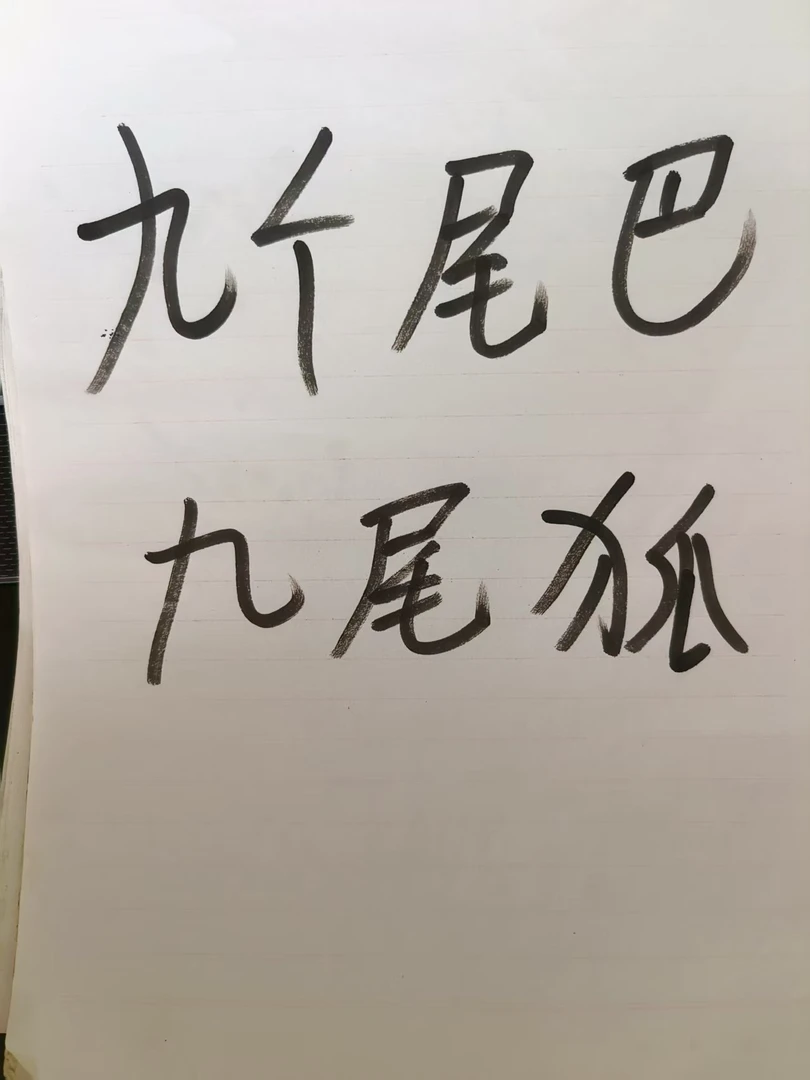 九个尾巴
九尾狐